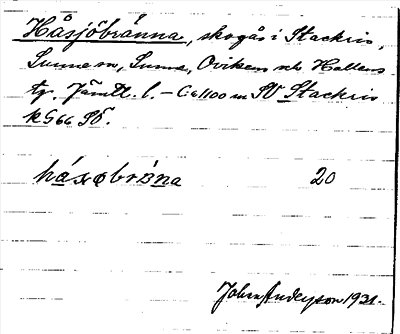 Håsjöbränna, skogås i Stackris,
Sunne sn, Sunne, Oviken och Hallens
tg. Jämtl. l. – C:a 1100 m SV Stackris
k 566 SÖ.
håsøbrɜna 20
John Anderson 1931.